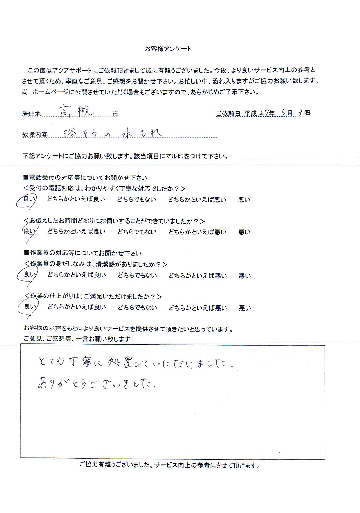 お客様アンケート
この度はアクアサポートにご依頼頂きまして誠に有難うございました。今後、より良いサービス向上の参考と
させて頂くため、率直なご意見、ご感想をお聞かせ下さい。お忙しい中、恐れ入りますがご協力お願い致します。
尚、ホームページに公開させていただく場合もございますので、あらかじめご了承下さい。
ご依頼日 平成 年 月 日
作業内容 の水もれ
下記アンケートにご協力お願い致します。該当項目にマルをつけて下さい。
■電話受付の対応等についてお聞かせ下さい
<受付の電話対応は、わかりやすく丁寧な対応でしたか?>
良い どちらかといえば良い どちらでもない どちらかといえば悪い 悪い
<お伝えしたお時間どおりにお伺いすることができていましたか?>
良い どちらかといえば良い どちらでもない どちらかといえば悪い 悪い
■作業員の対応等についてお聞かせ下さい
<作業員の身だしなみは、清潔感がありましたか?>
良い どちらかといえば良い どちらでもない どちらかといえば悪い 悪い
<作業の仕上がりは、ご満足いただけましたか?>
良い どちらかといえば良い どちらでもない どちらかといえば悪い 悪い
お客様のお声をもとにより良いサービスを提供させて頂きたいと思っています。
ご意見、ご感想等、一言お願い致します
とても丁寧に処置していただきました。
ありがとうございました。
ご協力有難うございました。サービス向上の参考にさせて頂きます。